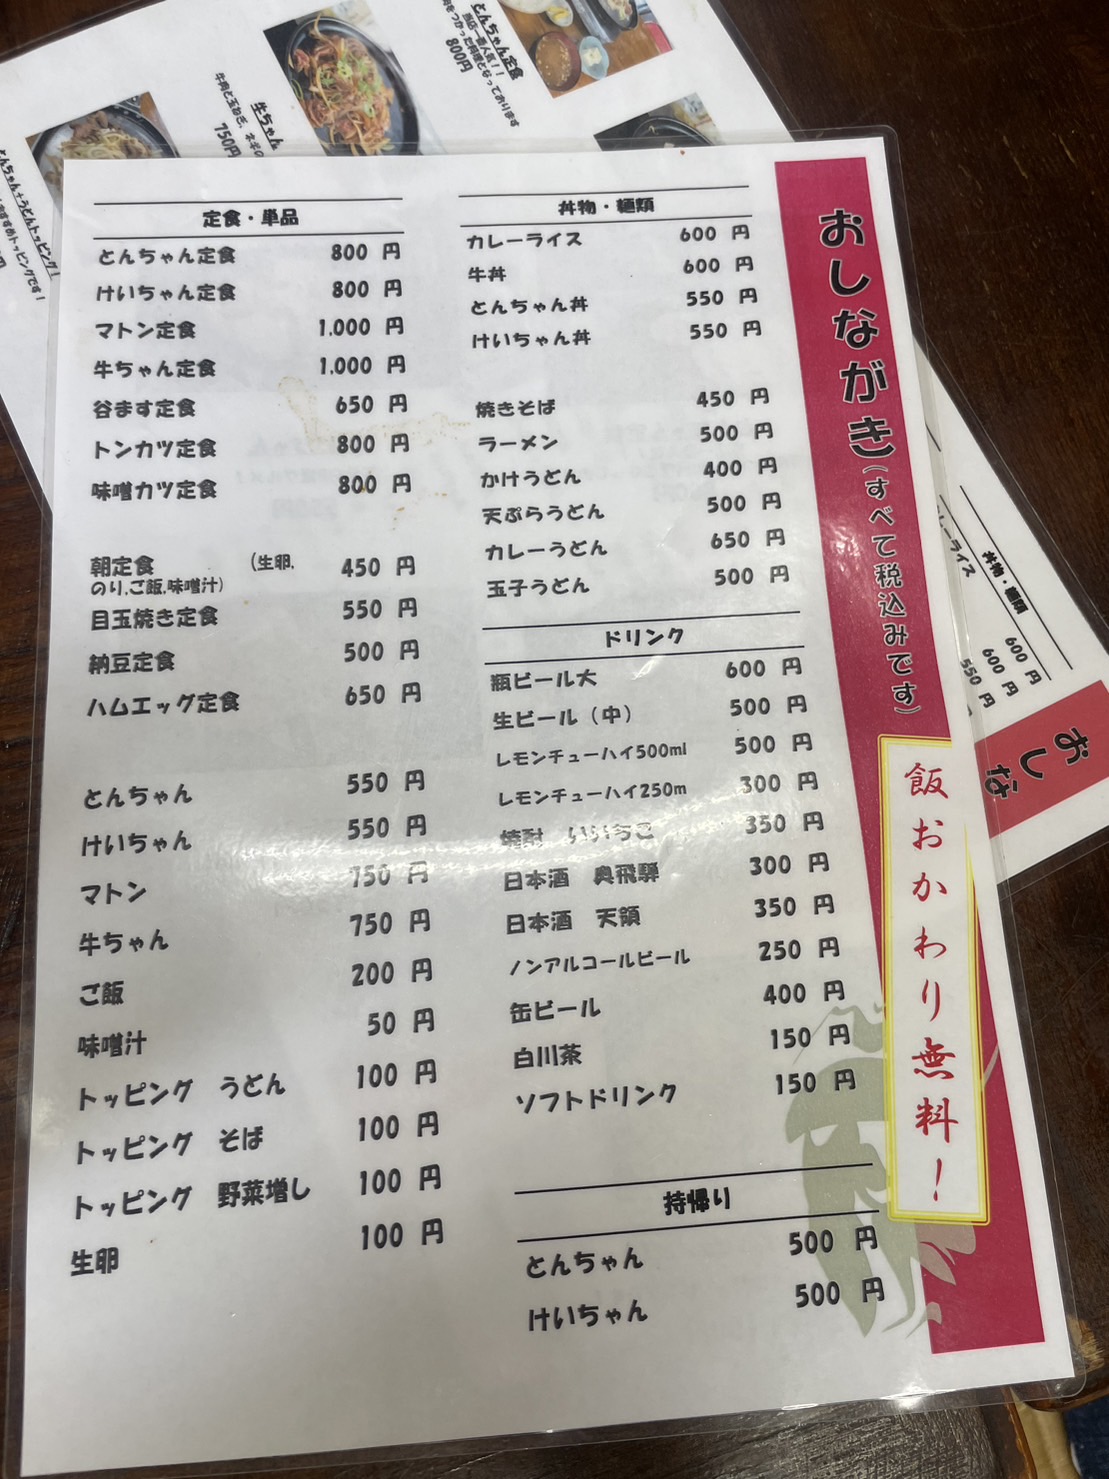 おしながき(すべて税込みです)
飯おかわり無料!
定食・単品
とんちゃん定食 800 円
けいちゃん定食 800 円
マトン定食 1.000 円
牛ちゃん定食 1.000 円
谷ます定食 650 円
トンカツ定食 800 円
味噌カツ定食 800 円
朝定食 (生卵, 450 円
のり,ご飯,味噌汁)
目玉焼き定食 550 円
納豆定食 500 円
ハムエッグ定食 650 円
とんちゃん 550 円
けいちゃん 550 円
マトン 750 円
牛ちゃん 750 円
ご飯 200 円
味噌汁 50 円
トッピング うどん 100 円
トッピング そば 100 円
トッピング 野菜増し 100 円
生卵 100 円
丼物・麺類
カレーライス 600 円
牛丼 600 円
とんちゃん丼 550 円
けいちゃん丼 550 円
焼きそば 450 円
ラーメン 500 円
かけうどん 400 円
天ぷらうどん 500 円
カレーうどん 650 円
玉子うどん 500 円
ドリンク
瓶ビール大 600 円
生ビール（中） 500 円
レモンチューハイ500ml 500 円
レモンチューハイ250m 300 円
焼酎 いいちこ 350 円
日本酒 奥飛騨 300 円
日本酒 天領 350 円
ノンアルコールビール 250 円
缶ビール 400 円
白川茶 150 円
ソフトドリンク 150 円
持帰り
とんちゃん 500 円
けいちゃん 500 円
とんちゃん定食
当店一番人気！！
をつかった料理となっております
800円
牛ちゃん
牛肉と玉ねぎ、
750円
とんちゃん+うどんトッピング！
すすめトッピングです！
丼物・麺類
ーライス
600 円
600 円
550 円
おしな